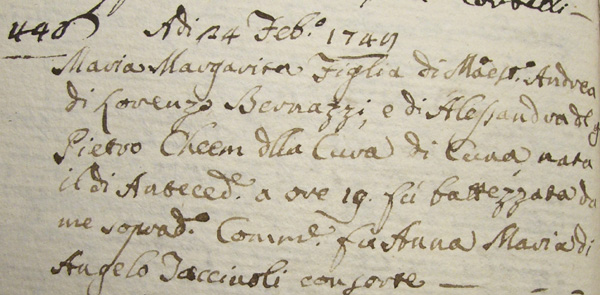 Adi 24 Feb.° 1749
Maria Margarita Figlia di Maest.° Andrea
di Lorenzo Bernazzi, e di Alessandra dl q
Pietro Cheem dlla Cura di Cuna, nata
il di Anteced.e a ore 19. fù battezzata da
me soprad.° Comm.e fù Anna Maria di
Angelo Jaccivoli consorte